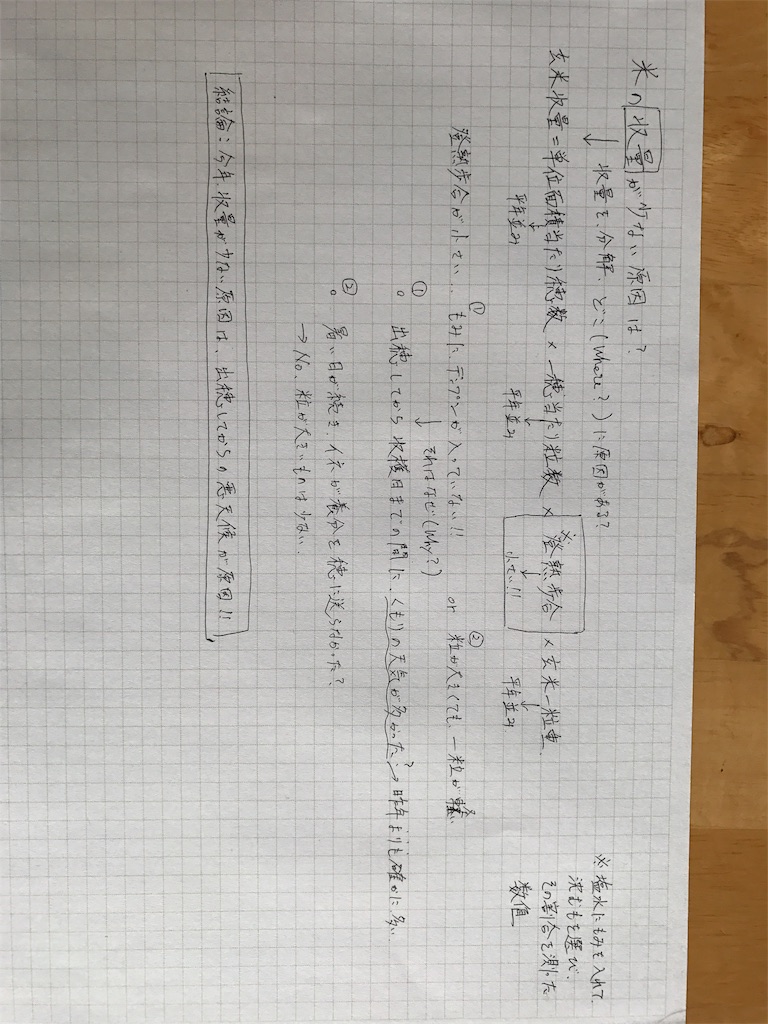 米の収量が少ない原因は?
↓ 収量を分解、どこ(Where?)に原因がある?
玄米収量=単位面積当たり穂数 × 一穂当たり粒数 × ※登熟歩合 × 玄米一粒重
↓ 平年並み ↓ 平年並み ↓ 小さい!! ↓ 平年並み
※塩水にもみを入れて
沈むもを選び、
その割合を測った
数値
登熟歩合が小さい… ①もみに、デンプンが入っていない!! or ②粒が大きくても、一粒が軽い
↓ それはなぜ(Why?)
① 。出穂してから収穫日までの間に、くもりの天気が多かった?→昨年よりも確かに多い
② 。暑い日が続き、イネが養分を穂に送らなかった?
→No、粒が大きいものは少ない。
結論:今年、収量が少ない原因は、出穂してからの悪天候が原因!!